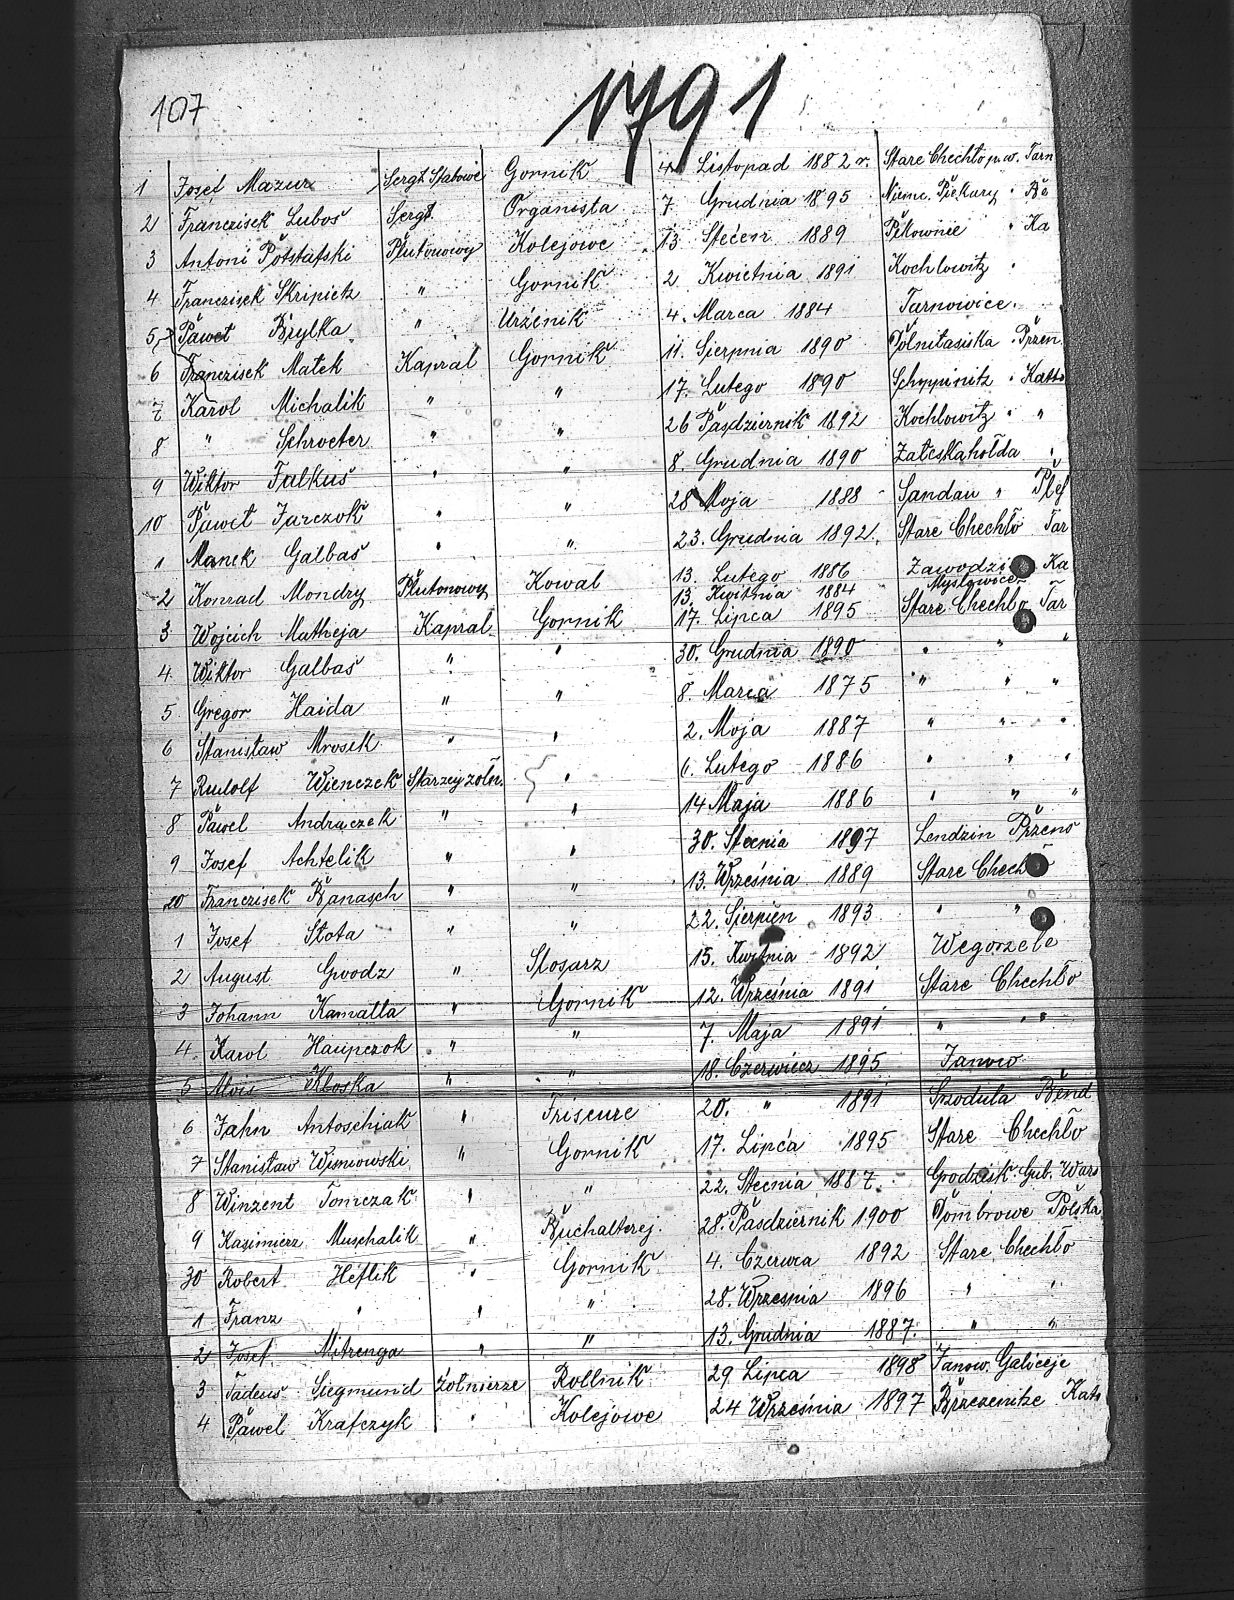 107
1791
1 Josef Mazur Sergt. Stabowé Gornik 4. Listopad 1882 r. Stare Chechło p.w. Tarn
2 Franczisek Luboš Sergt. Organista 7 Grudnia 1895 Niemc. Piekary " Bé
3 Antoni Potstafski Plutonowy Kolejowe 13 Stećen 1889 Pikownie " Ka
4 Franczisek Skripietz " Gornik 2 Kwietnia 1891 Kochlowitz "
5 Paweł Brylka " Urzénik 4. Marca 1884 Tarnowice.
6 Franczisek Matek Kapral Gornik 11. Sierpnia 1890 Dolnitasiska Przen
7 Karol Michalik " " 17. Lutego 1890 Schoppinitz " Katto
8 " Schroeter " " 26 Pasdziernik 1892 Kochlowitz " "
9 Wiktor Falkuś " " 8. Grudnia 1890 Załeskahołda "
10 Paweł Jarczok " " 28 Moja 1888 Sandau " Plef
1 Manek Galbaś " " 23. Grudnia 1892. Stare Chechło Tar
2 Konrad Mondry Plutonowy Kowal 13. Lutego 1886 Zawodzi Ka
13. Kwitnia 1884 Myslowice
3 Wojcich Matheja Kapral Gornik 17. Lipca 1895 Stare Chechło Tar
4 Wiktor Galbaś " " 30. Grudnia 1890 " " "
5 Gregor Haida " " 8. Marca 1875 " " "
6 Stanisław Mrosek " " 2. Moja 1887 " " "
7 Rudolf Wienczek Starzey żołn. " 6. Lutego 1886 " " "
8 Pawel Andrączek " " 14 Maja 1886 " " "
9 Josef Achtelik " " 30. Stecnia 1897 Lendzin Przens
20 Franczisek Banasch " " 13. Września 1889 Stare Chech
1 Josef Słota " " 22. Sierpien 1893 " "
2 August Gwodz " Slosarz 15. Kwitnia 1892 Wegorzele
3 Johann Kamalla " Gornik 12. Września 1891 Stare Chechło
4. Karol Haupczok " " 7. Maja 1891 " "
5 Alois Kloska " " 18. Czerwiecz 1895 Janow
6 Jahn Antoschiak " Friseure 20. " 1891 Srzodula Bénd
7 Stanisław Wisniowski " Gornik 17. Lipca 1895 Stare Chechło
8 Winzent Tomczak " " 22. Stecnia 1887. Grodzisk. Gub. Wars
9 Kazimierz Muschalik " Buchalterej. 28. Pasdziernik 1900 Dombrowe Polska
30 Robert Héflik " Gornik 4. Czerwca 1892 Stare Chechło
1 Franz " " " 28. Wrzesnia 1896 " "
2 Josef Mitrenga " " 13. Grudnia 1887. " "
3 Tadeus Siegmund Żołnierze Rollnik 29 Lipca 1898 Janow. Galiceje
4 Pawel Krafczyk " Kolejowe 24 Września 1897 Brzezenitze Kato